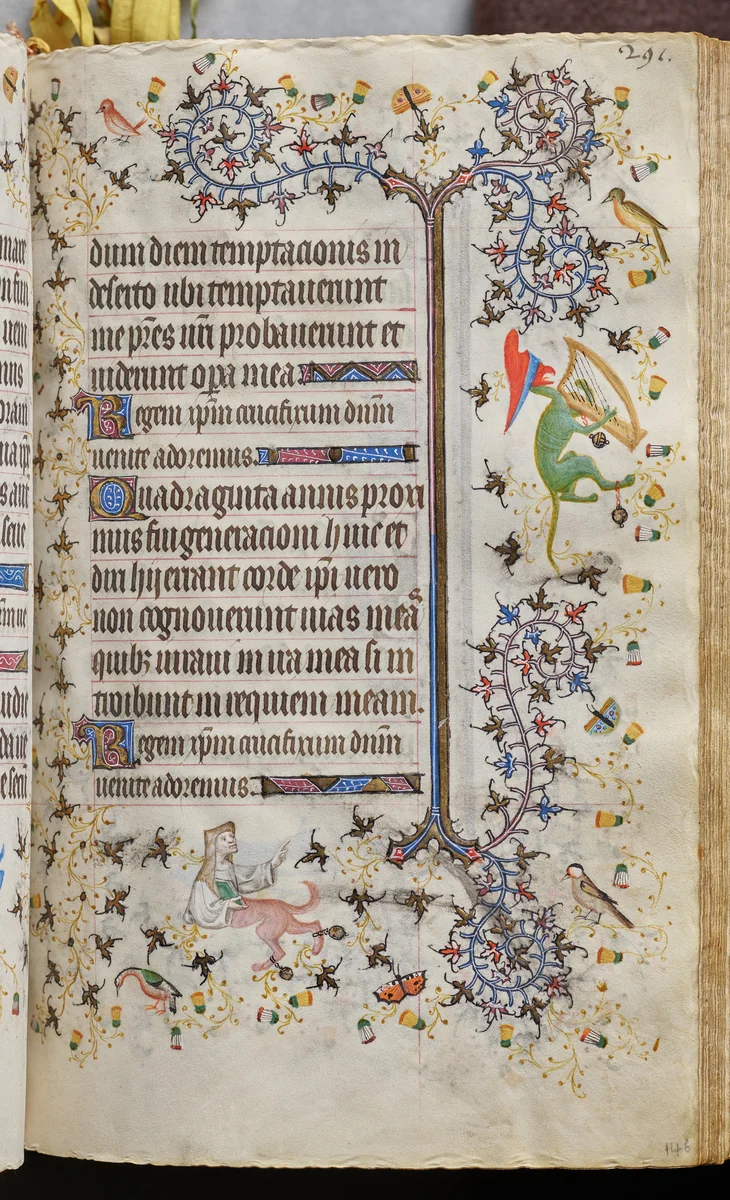 291.
dum diem temptacionis in
deserto ubi temptauerunt
me pr̃es ur̃i probauerunt et
uiderunt op̃a mea.
Regem xp̃m crucifixum dñm
uenite adoremus.
Quadraginta annis proxi
mus fui generacioni huic et
dixi hij errant corde ip̃i uero
non cognouerunt uias meas
quibꝫ iuraui in ira mea si in
troibunt in requiem meam.
Regem xp̃m crucifixum dñm
uenite adoremus.
146